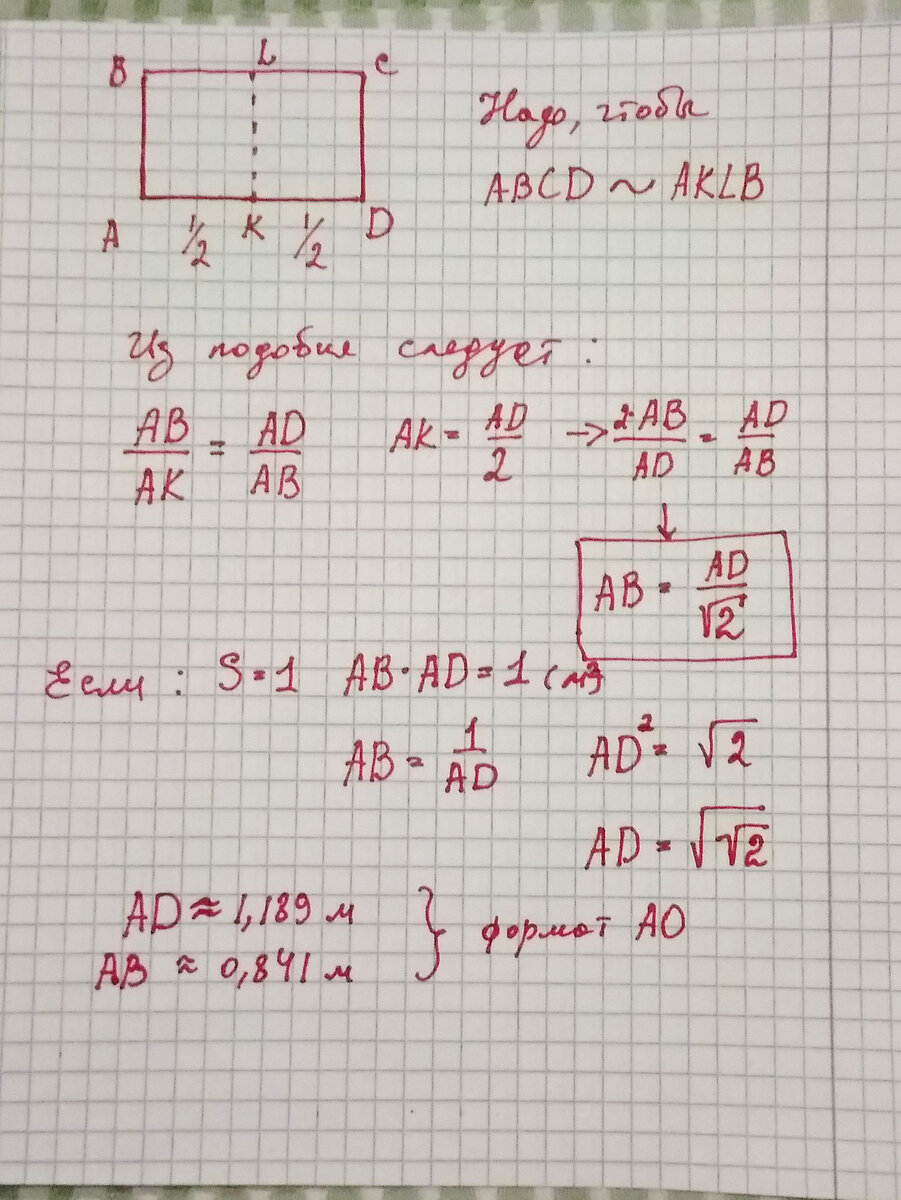 B L C
Надо, чтобы
ABCD ~ AKLB
A 1/2 K 1/2 D
Из подобия следует:
AB/AK = AD/AB AK = AD/2 → 2·AB/AD = AD/AB
↓
AB = AD/√2
Если: S = 1 AB · AD = 1
AB = 1/AD AD² = √2
AD = √√2
AD ≈ 1,189 м
AB ≈ 0,841 м } формат А0